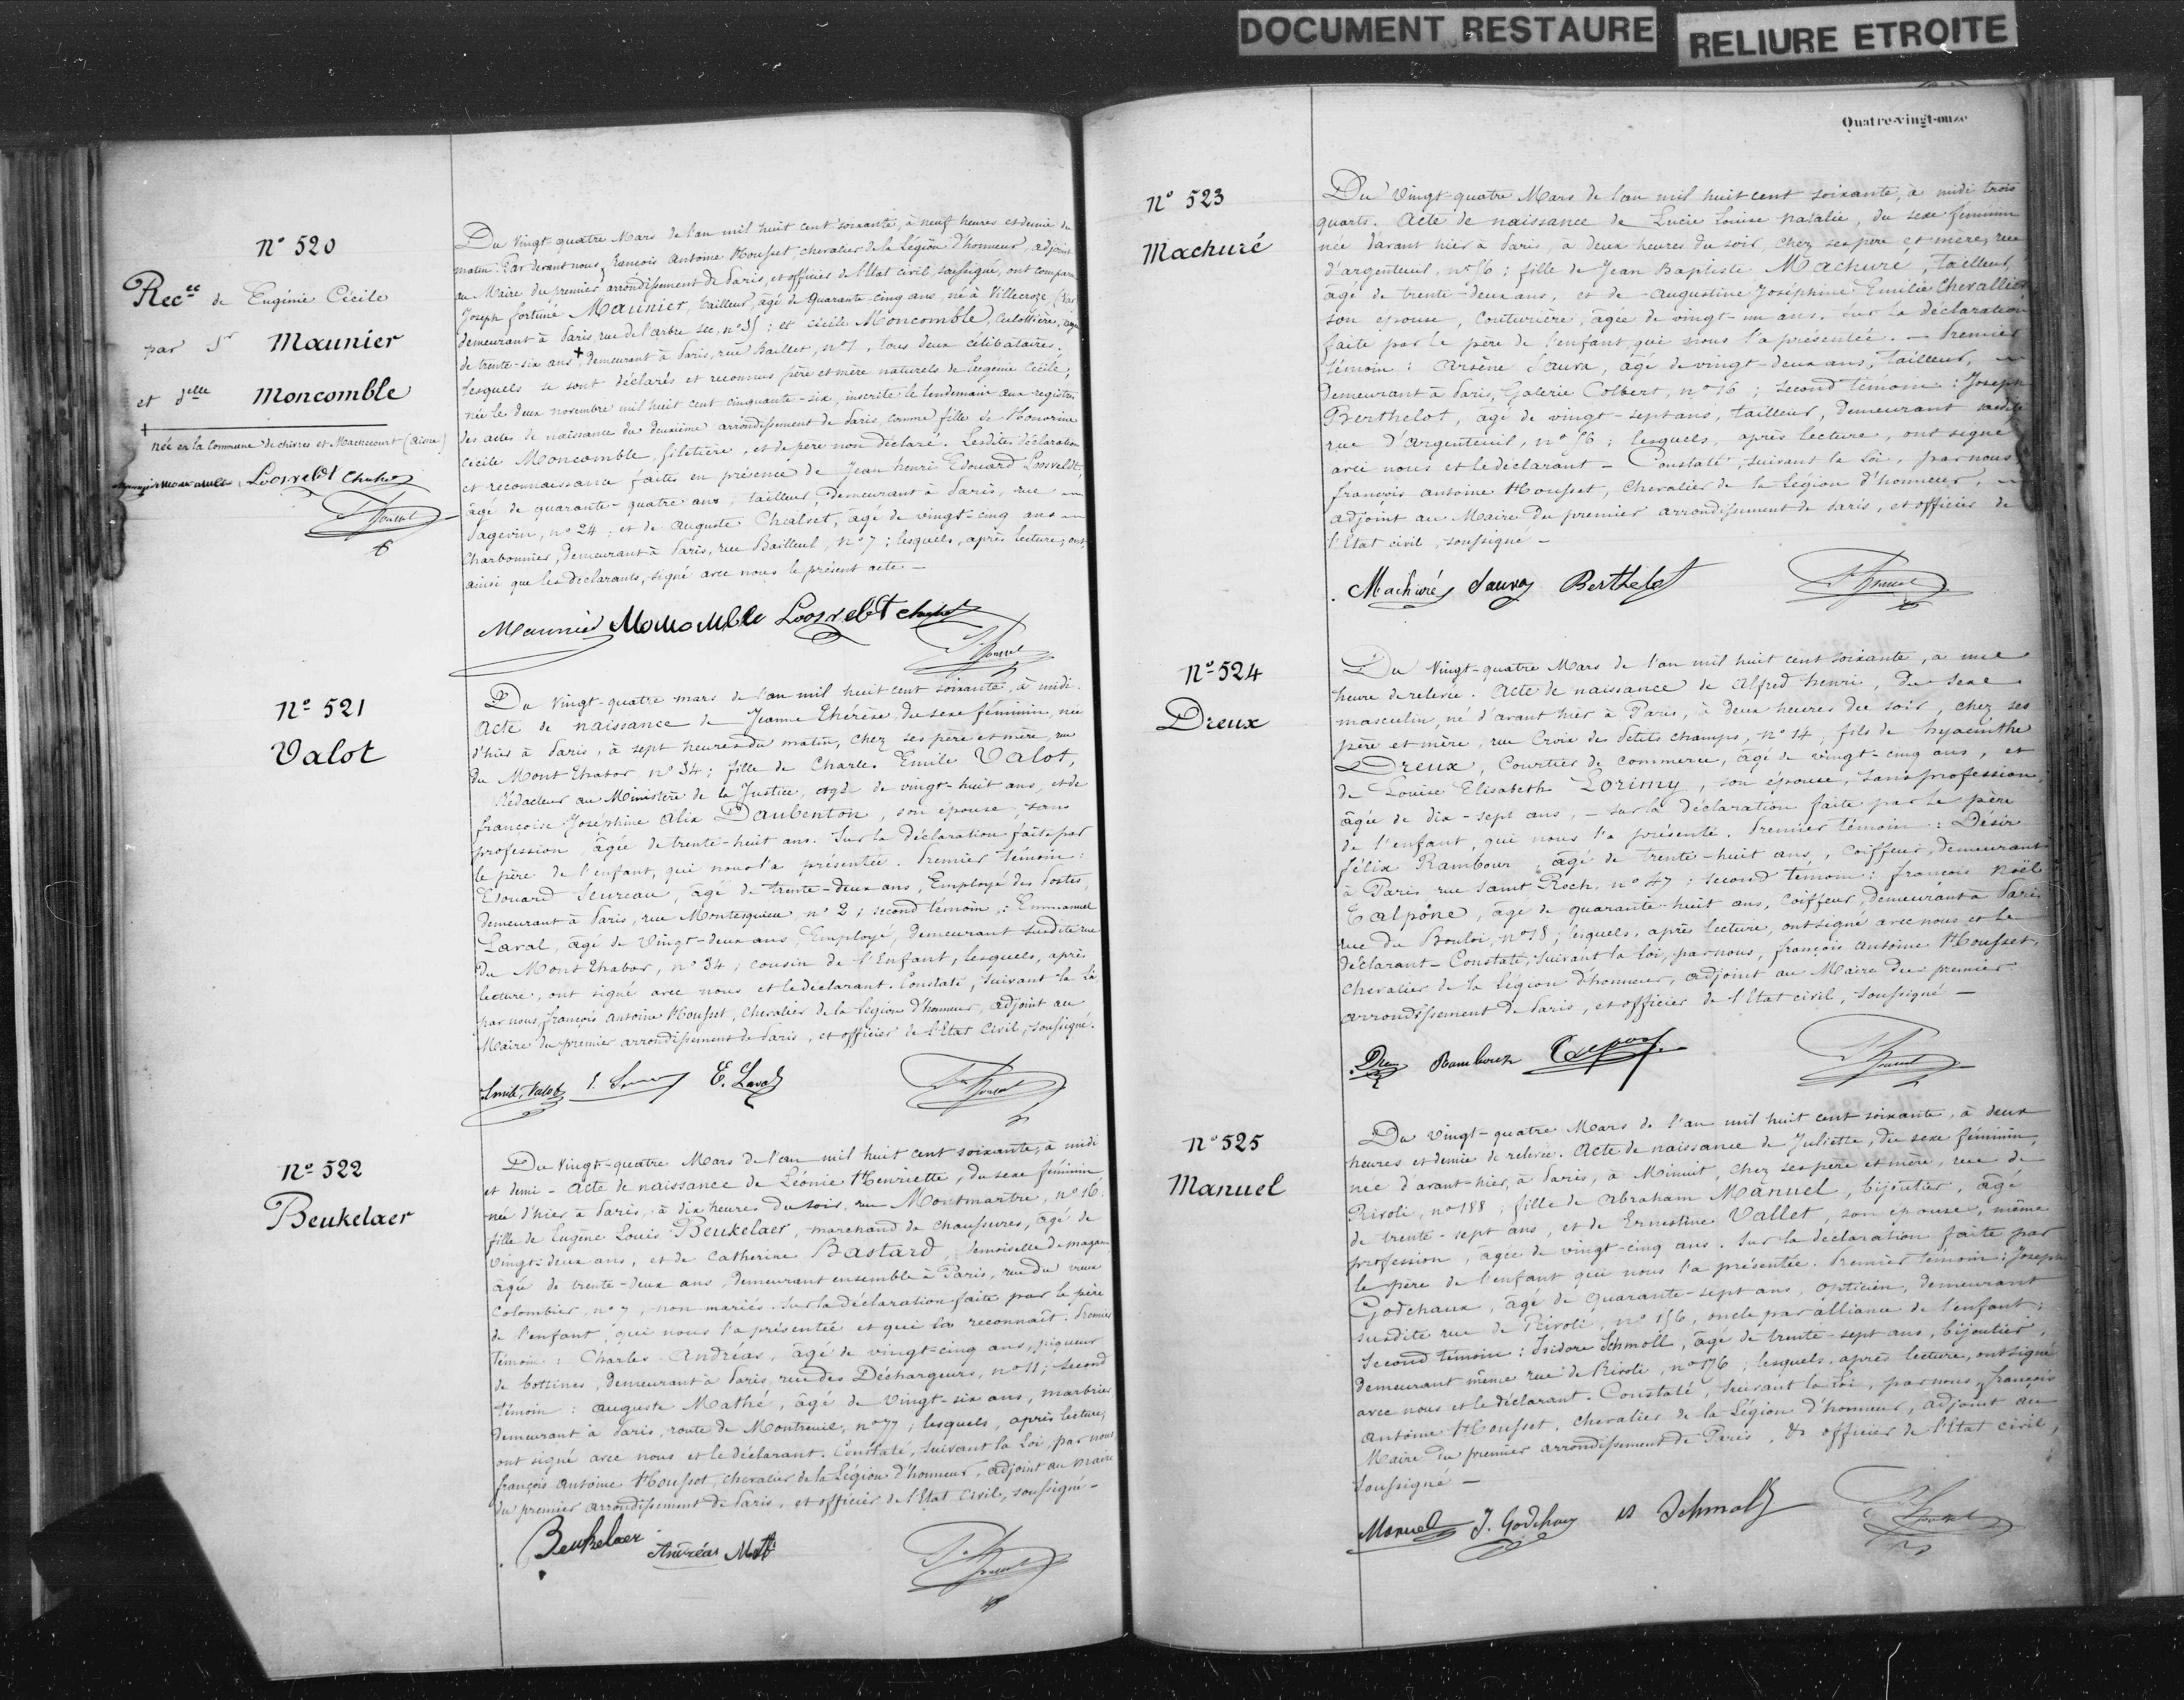 DOCUMENT RESTAURE
RELIURE ETROITE
N° 520
Rec.ce de Eugénie Cécile
par Sr Maunier
et delle Moncomble
+
née en la Commune de chivres et Machecourt (Aisne)
Loosveldt
Du Vingt quatre Mars de l'an mil huit cent soixante, à neuf heures et demie du
matin. Par devant nous, françois Antoine Housset, chevalier de la Légion d'honneur, adjoint
au Maire du premier arrondissement de Paris, et officier de l'Etat civil, soussigné, ont comparu
Joseph fortuné Maunier, tailleur, âgé de Quarante-cinq ans, né à Villecroze, (Var)
demeurant à Paris, rue de l'arbre sec, n° 35; et cécile Moncomble, Culottière, âgée
de trente-six ans + demeurant à Paris, rue Baillet, n° 1, tous deux célibataires.
Lesquels se sont déclarés et reconnus père et mère naturels de Eugénie Cécile,
née le deux novembre mil huit cent cinquante-six, inscrite le lendemain aux registres
des actes de naissance du deuxième arrondissement de Paris, comme fille de Honorine
Cécile Moncomble, giletière, et de père non déclaré. Lesdites déclaration
et reconnaissance faites en présence de Jean henri Edouard Loosveldt,
âgé de quarante-quatre ans, tailleur, demeurant à Paris, rue
Pagevin, n° 24; et de Auguste Chalvet, âgé de vingt-cinq ans
Charbonnier, demeurant à Paris, rue Bailleul, n° 7; lesquels, après lecture, ont,
ainsi que les déclarants, signé avec nous le présent acte —
Maunier Moncomble Loosveldt Chalvet
Housset
N° 521
Valot
Du Vingt-quatre mars de l'an mil huit cent soixante, à midi.
Acte de naissance de Jeanne Thérèse, du sexe féminin, née
d'hier à Paris, à sept heures du matin, chez ses père et mère, rue
du Mont Thabor, n° 34; fille de Charles Emile Valot,
Rédacteur au Ministère de la Justice, âgé de vingt-huit ans, et de
françoise Joséphine Alix Daubenton, son épouse, sans
profession âgée de trente-huit ans. Sur la déclaration faite par
le père de l'enfant, qui nous l'a présentée. Premier témoin:
Edouard Seureau, âgé de trente-deux ans, Employé des Postes,
demeurant à Paris, rue Montesquieu n° 2; second témoin: Emmanuel
Laval, âgé de Vingt-deux ans, Employé, demeurant susdite rue
du Mont Thabor, n° 34; cousin de l'Enfant, lesquels, après
lecture, ont signé avec nous et le déclarant. Constaté, suivant la Loi,
par nous, françois Antoine Housset, Chevalier de la Légion d'honneur, Adjoint au
Maire du premier arrondissement de Paris, et officier de l'Etat Civil, soussigné.
Emile Valot E. Laval
Housset
N° 522
Beukelaer
Du Vingt-quatre Mars de l'an mil huit cent soixante, à midi
et demi — Acte de naissance de Léonie Henriette, du sexe féminin
née d'hier à Paris, à dix heures du soir, rue Montmartre, n° 16.
fille de Eugène Louis Beukelaer, marchand de chaussures, âgé de
Vingt-deux ans, et de Catherine Bastard, demoiselle de magasin,
âgée de trente-deux ans, demeurant ensemble à Paris, rue du vieux
Colombier, n° 7, non mariés. Sur la déclaration faite par le père
de l'enfant, qui nous l'a présentée et qui la reconnaît. Premier
témoin: Charles Andréas, âgé de vingt-cinq ans, piqueur
de bottines, demeurant à Paris, rue des Déchargeurs, n° 11; second
témoin: Auguste Mathé, âgé de Vingt-six ans, marbrier
demeurant à Paris, route de Montreuil, n° 77; lesquels, après lecture,
ont signé avec nous et le déclarant. Constaté, suivant la Loi, par nous
françois Antoine Housset, chevalier de la Légion d'honneur, adjoint au maire
du premier arrondissement de Paris, et officier de l'Etat Civil, soussigné —
Beukelaer Andréas
Housset
Quatre-vingt-onze
N° 523
Machuré
Du Vingt-quatre Mars de l'an mil huit cent soixante, à midi trois
quarts. Acte de naissance de Lucie Louise Natalie, du sexe féminin
née d'avant hier à Paris, à deux heures du soir, chez ses père et mère, rue
d'argenteuil, n° 56; fille de Jean Baptiste Machuré, tailleur,
âgé de trente-deux ans, et de Augustine Joséphine Emilie Chevallier
son épouse, Couturière, âgée de vingt-un ans. Sur la déclaration
faite par le père de l'enfant qui nous l'a présentée. — Premier
témoin: Arsène Sauva, âgé de vingt-deux ans, tailleur,
demeurant à Paris, Galerie Colbert, n° 16; second témoin: Joseph
Berthelot, âgé de vingt-sept ans, tailleur, demeurant susdite
rue d'argenteuil, n° 56; lesquels, après lecture, ont signé
avec nous et le déclarant — Constaté, suivant la Loi, par nous
françois antoine Housset, Chevalier de la Légion d'honneur,
adjoint au Maire du premier arrondissement de Paris, et officier de
l'Etat civil, soussigné —
Machuré Sauva Berthelot
Housset
N° 524
Dreux
Du Vingt-quatre Mars de l'an mil huit cent soixante, à une
heure de relevée. Acte de naissance de Alfred henri, du sexe
masculin, né d'avant hier à Paris, à deux heures du soir, chez ses
père et mère, rue Croix des Petits champs, n° 14; fils de hyacinthe
Dreux, Courtier de commerce, âgé de vingt-cinq ans, et
de Louise Elisabeth Lorimy, son épouse, sans profession,
âgée de dix-sept ans, — sur la déclaration faite par le père
de l'enfant, qui nous l'a présenté. Premier témoin: Désir
félix Rambour, âgé de trente-huit ans, coiffeur, demeurant
à Paris rue Saint Roch, n° 47; second témoin: françois Noël
Calpône, âgé de quarante-huit ans, Coiffeur, demeurant à Paris
rue du Bouloi, n° 18; lesquels, après lecture, ont signé avec nous et le
déclarant — Constaté, suivant la loi, par nous, françois Antoine Housset,
Chevalier de la Légion d'honneur, adjoint au Maire du premier
arrondissement de Paris, et officier de l'Etat civil, soussigné —
Housset
N° 525
Manuel
Du Vingt-quatre Mars de l'an mil huit cent soixante, à deux
heures et demie de relevée. Acte de naissance de Juliette, du sexe féminin,
née d'avant-hier, à Paris, à Minuit, chez ses père et mère, rue de
Rivoli, n° 188; fille de Abraham Manuel, bijoutier, âgé
de trente-sept ans, et de Ernestine Vallet, son épouse, même
profession, âgée de vingt-cinq ans. Sur la déclaration faite par
le père de l'enfant qui nous l'a présentée. Premier témoin: Joseph
Godchaux, âgé de quarante-sept ans, opticien, demeurant
susdite rue de Rivoli, n° 156, oncle par alliance de l'enfant;
Second témoin: Isidore Schmoll, âgé de trente-sept ans, bijoutier,
demeurant même rue de Rivoli, n° 176; lesquels, après lecture, ont signé
avec nous et le déclarant. Constaté, suivant la Loi, par nous, françois
Antoine Housset, chevalier de la Légion d'honneur, adjoint au
Maire du premier arrondissement de Paris, & officier de l'Etat civil,
Soussigné —
Manuel J. Godchaux is Schmoll
Housset